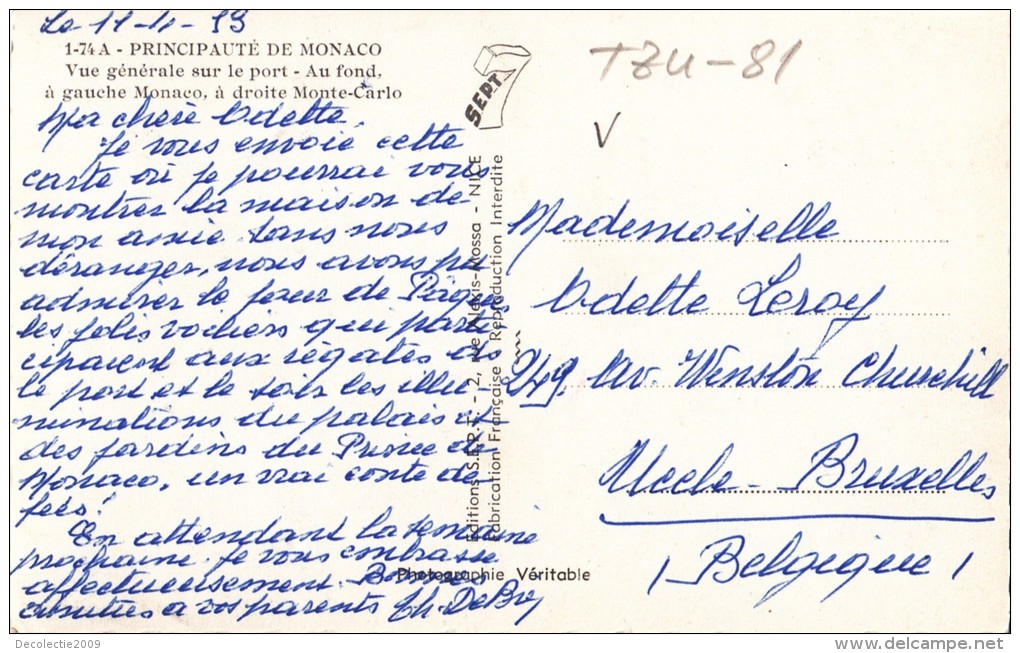 Le 11-4-
1-74 A - PRINCIPAUTÉ DE MONACO
Vue générale sur le port - Au fond,
à gauche Monaco, à droite Monte-Carlo
Ma chère Odette,
Je vous envoie cette
carte où je pourrai vous
montrer la maison de
mon amie sans nous
déranger, nous avons pu
admirer le jour de Pâques
les jolis voiliers qui parti-
cipaient aux régates dans
le port et le soir les illu-
minations du palais et
des jardins du Prince de
Monaco, un vrai conte de
fées!
En attendant la semaine
prochaine je vous embrasse
affectueusement. Bonnes
amitiés à vos parents
SEPT
Editions S.E.P.T. - 2, rue Alexis-Mossa - NICE
Fabrication Française - Reproduction Interdite
Photographie Véritable
TZU-81
V
Mademoiselle
Odette Leroy
249. Av. Winston Churchill
Uccle - Bruxelles
(Belgique)
Decolectie2009
www.delcampe.net